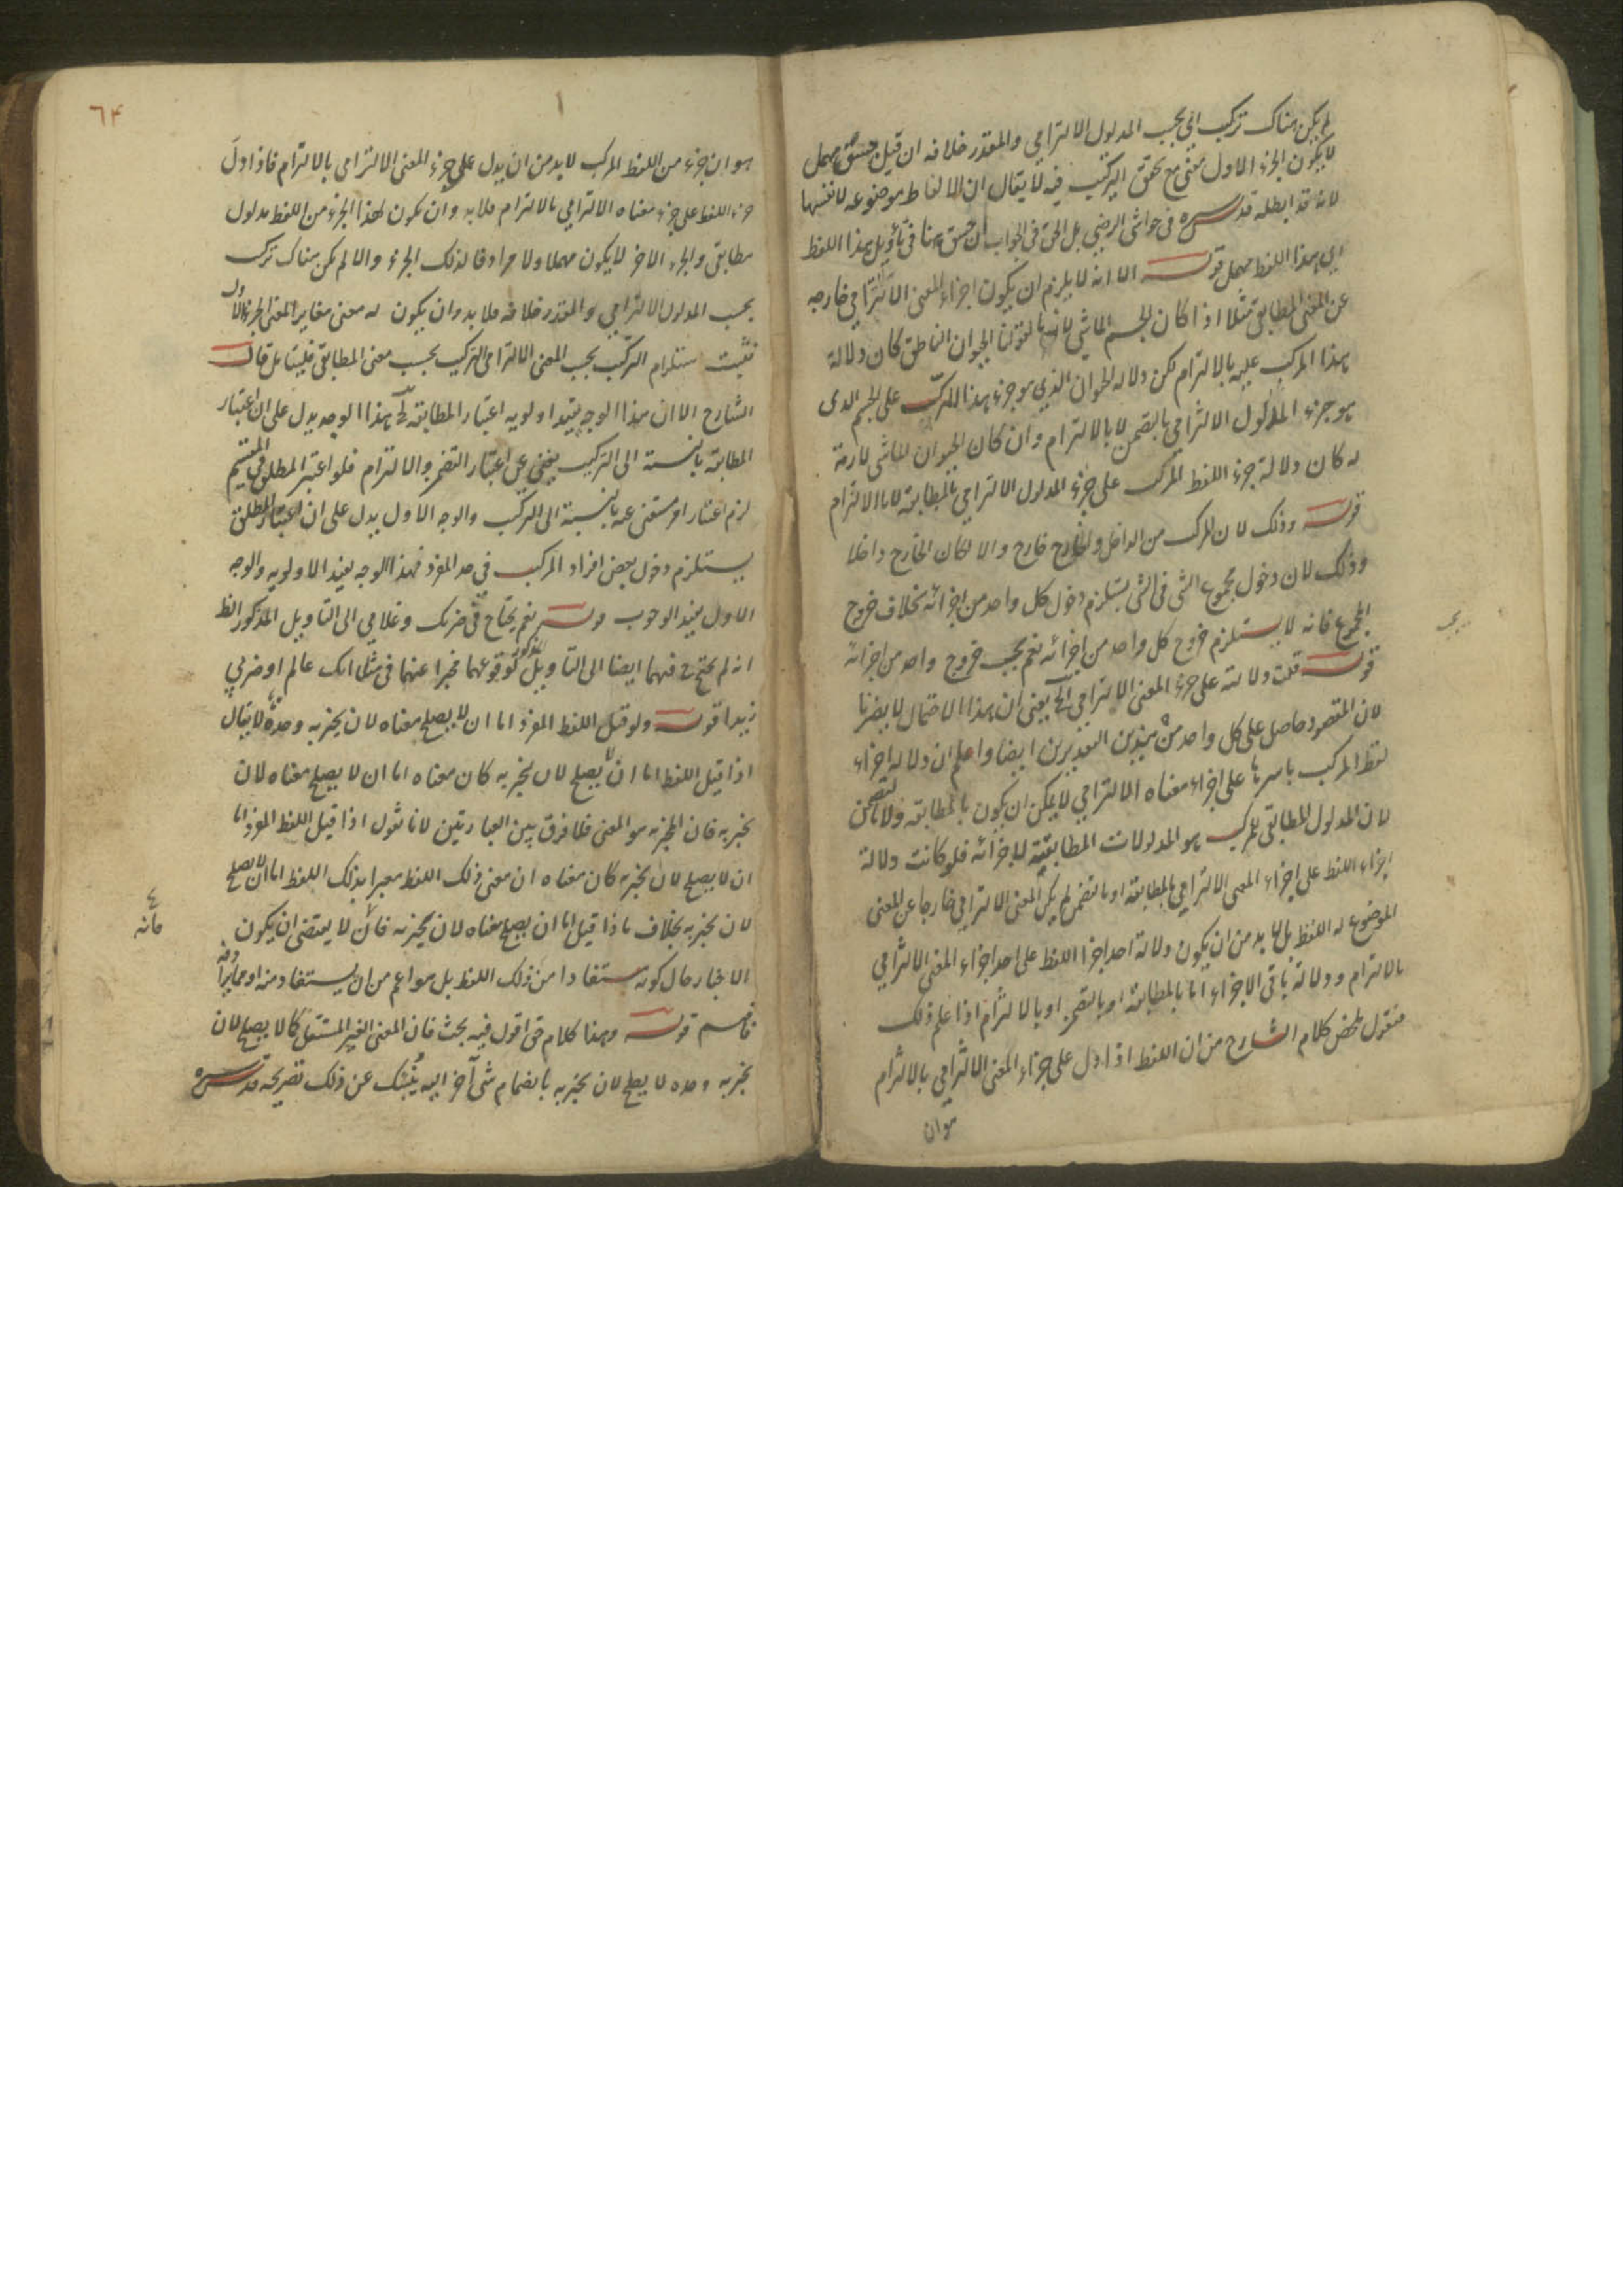 لم يكن هناك تركيب اي بحسب المدلول الالتزامي والمقدر خلافه ان قيل جسق مهمل
لا يكون الجزء الاول معنى مع تحقق التركيب فيه لا يقال ان الالفاظ موضوعه لانفسها
لانه قد ابطله قدسسره في حواشي الرضي بل الحق في الجواب ان جسق هنا في تأويل هذا اللفظ
اي هذا اللفظ مهمل قوله الا انه لا يلزم ان يكون اجزاء المعنى الالتزامي خارجه
عن المعنى المطابقي مثلا اذا كان الجسم الماشي لازما لقولنا الحيوان الناطق كان دلالة
هذا المركب عليه بالالتزام لكن دلاله الحيوان الذي هو جزء هذا المركب على الجسم الذي
هو جزء المدلول الالتزامي بالتضمن لا بالالتزام وان كان الحيوان للماشي لازمة
له كان دلالة جزء اللفظ المركب على جزء المدلول الالتزامي بالمطابقة لا بالالتزام
قوله وذلك لان المركب من الداخل والخارج خارج والا لكان الخارج داخلا
وذلك لان دخول مجموع الشئ في الشئ يستلزم دخول كل واحد من اجزائه بخلاف خروج
المجموع فانه لا يستلزم خروج كل واحد من اجزائه نعم يجب خروج واحد من اجزائه
قوله قلت دلالته على جزء المعنى الالتزامي الخ يعني ان هذا الاحتمال لا يضرنا
لان المقصود حاصل على كل واحد من هذين التقديرين ايضا واعلم ان دلاله اجزاء
لفظ المركب باسرها على اجزاء معناه الالتزامي لا يمكن ان يكون بالمطابقه ولا بالتضمن
لان المدلول المطابقي للمركب هو المدلولات المطابقية لاجزائه فلو كانت دلالة
اجزاء اللفظ على اجزاء المعنى الالتزامي بالمطابقة او بالتضمن لم يكن المعنى الالتزامي خارجا عن المعنى
الموضوع له اللفظ بل لا بد من ان يكون دلالة احد اجزا اللفظ على احد اجزاء المعنى الالتزامي
بالالتزام ودلالة باقي الاجزاء اما بالمطابقة او بالتضمن او بالالتزام اذا علم ذلك
فنقول ملخص كلام الشارح من ان اللفظ اذا دل على جزء المعنى الالتزامي بالالتزام
هو ان
يجب
٦٤
هو ان جزء من اللفظ المركب لا بد من ان يدل على جزء المعنى الالتزامي بالالتزام فاذا دل
جزء اللفظ على جزء معناه الالتزامي بالالتزام فلا بد وان يكون لهذا الجزء من اللفظ مدلول
مطابقي والجزء الاخر لا يكون مهملا ولا مرادفا لذلك الجزء والا لم يكن هناك تركيب
بحسب المدلول الالتزامي والمقدر خلافه فلا بد وان يكون له معنى مغاير المعنى الجزء الاول
فثبت استلزام التركيب بحسب المعنى الالتزامي التركيب بحسب معنى المطابقي فليتأمل قال
الشارح الا ان هذا الوجه يفيد اولويه اعتبار المطابقة الخ هذا الوجه يدل على ان اعتبار
المطابقة بالنسبة الى التركيب يغني عن اعتبار التضمن والالتزام فلو اعتبر المطلق في التقسيم
لزم اعتبار امر مستغنى عنه بالنسبة الى التركيب والوجه الاول يدل على ان اعتبار المطلق
يستلزم دخول بعض افراد المركب في حد المفرد فهذا الوجه يفيد الاولويه والوجه
الاول يفيد الوجوب قوله نعم يحتاج في ضربك وغلامي الى التأويل المذكور الظ
انه لم يحتج فيهما ايضا الى التأويل المذكور لوقوعهما مخبرا عنهما في مثل انك عالم او ضربي
زيدا قوله ولو قيل اللفظ المفرد اما ان لا يصلح معناه لان يخبر به وحده لا يقال
اذا قيل اللفظ اما ان لا يصلح لان يخبر به كان معناه اما ان لا يصلح معناه لان
يخبر به فان المخبر به هو المعنى فلا فرق بين العبارتين لانا نقول اذا قيل اللفظ المفرد اما
ان لا يصلح لان يخبر به كان معناه ان معنى ذلك اللفظ معبرا بذلك اللفظ اما ان لا يصلح
لان يخبر به بخلاف ما اذا قيل اما ان يصلح معناه لان يخبر به فانه لا يقتضي ان يكون
الاخبار حال كونه مستفادا من ذلك اللفظ بل هو اعم من ان يستفاد منه او مما يرادفه
فافهم قوله وهنا كلام حق اقول فيه بحث فان المعنى الغير المستقل كما لا يصلح لان
يخبر به وحده لا يصلح لان يخبر به بانضمام شئ آخر اليه ينبئك عن ذلك تصريحه قدسسره